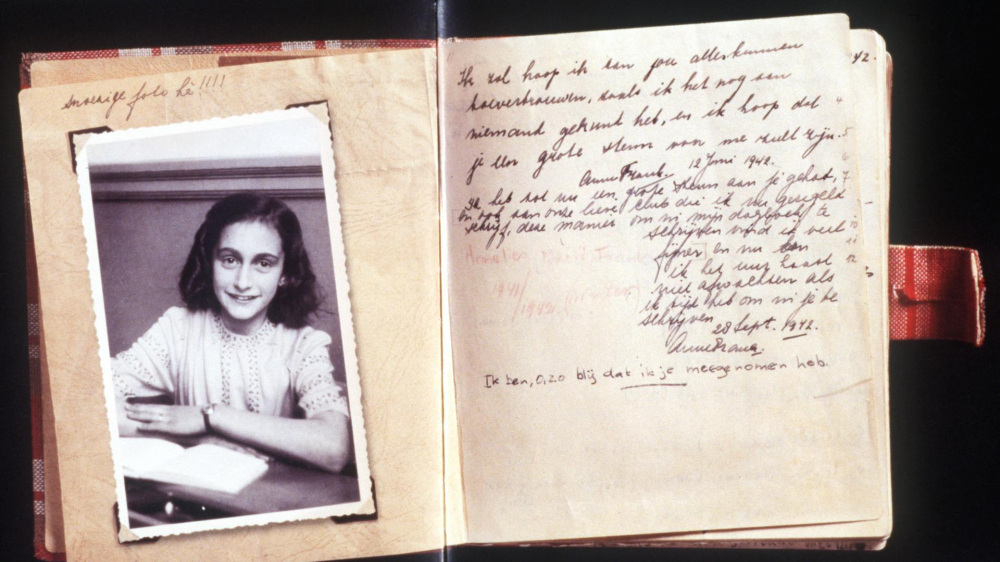 snoezige foto hè!!!!
42.
Ik zal hoop ik aan jou alles kunnen
toevertrouwen, zoals ik het nog aan
niemand gekunt heb, en ik hoop dat
je een grote steun voor me zult zijn.
Anne Frank. 12 Juni 1942.
Ik heb tot nu een grote steun aan je gehat,
en ook aan onze lieve club die ik nu geregeld
schrijf, deze manier om in mijn dagboek te
schrijven vind ik veel
fijner en nu kan
ik het uur haast
niet afwachten als
ik tijd heb om in je te
schrijven
28 Sept. 1942.
Anne Frank.
Annelies Marie Frank
1941/
1942
Ik ben, o, zo blij dat ik je meegenomen heb.